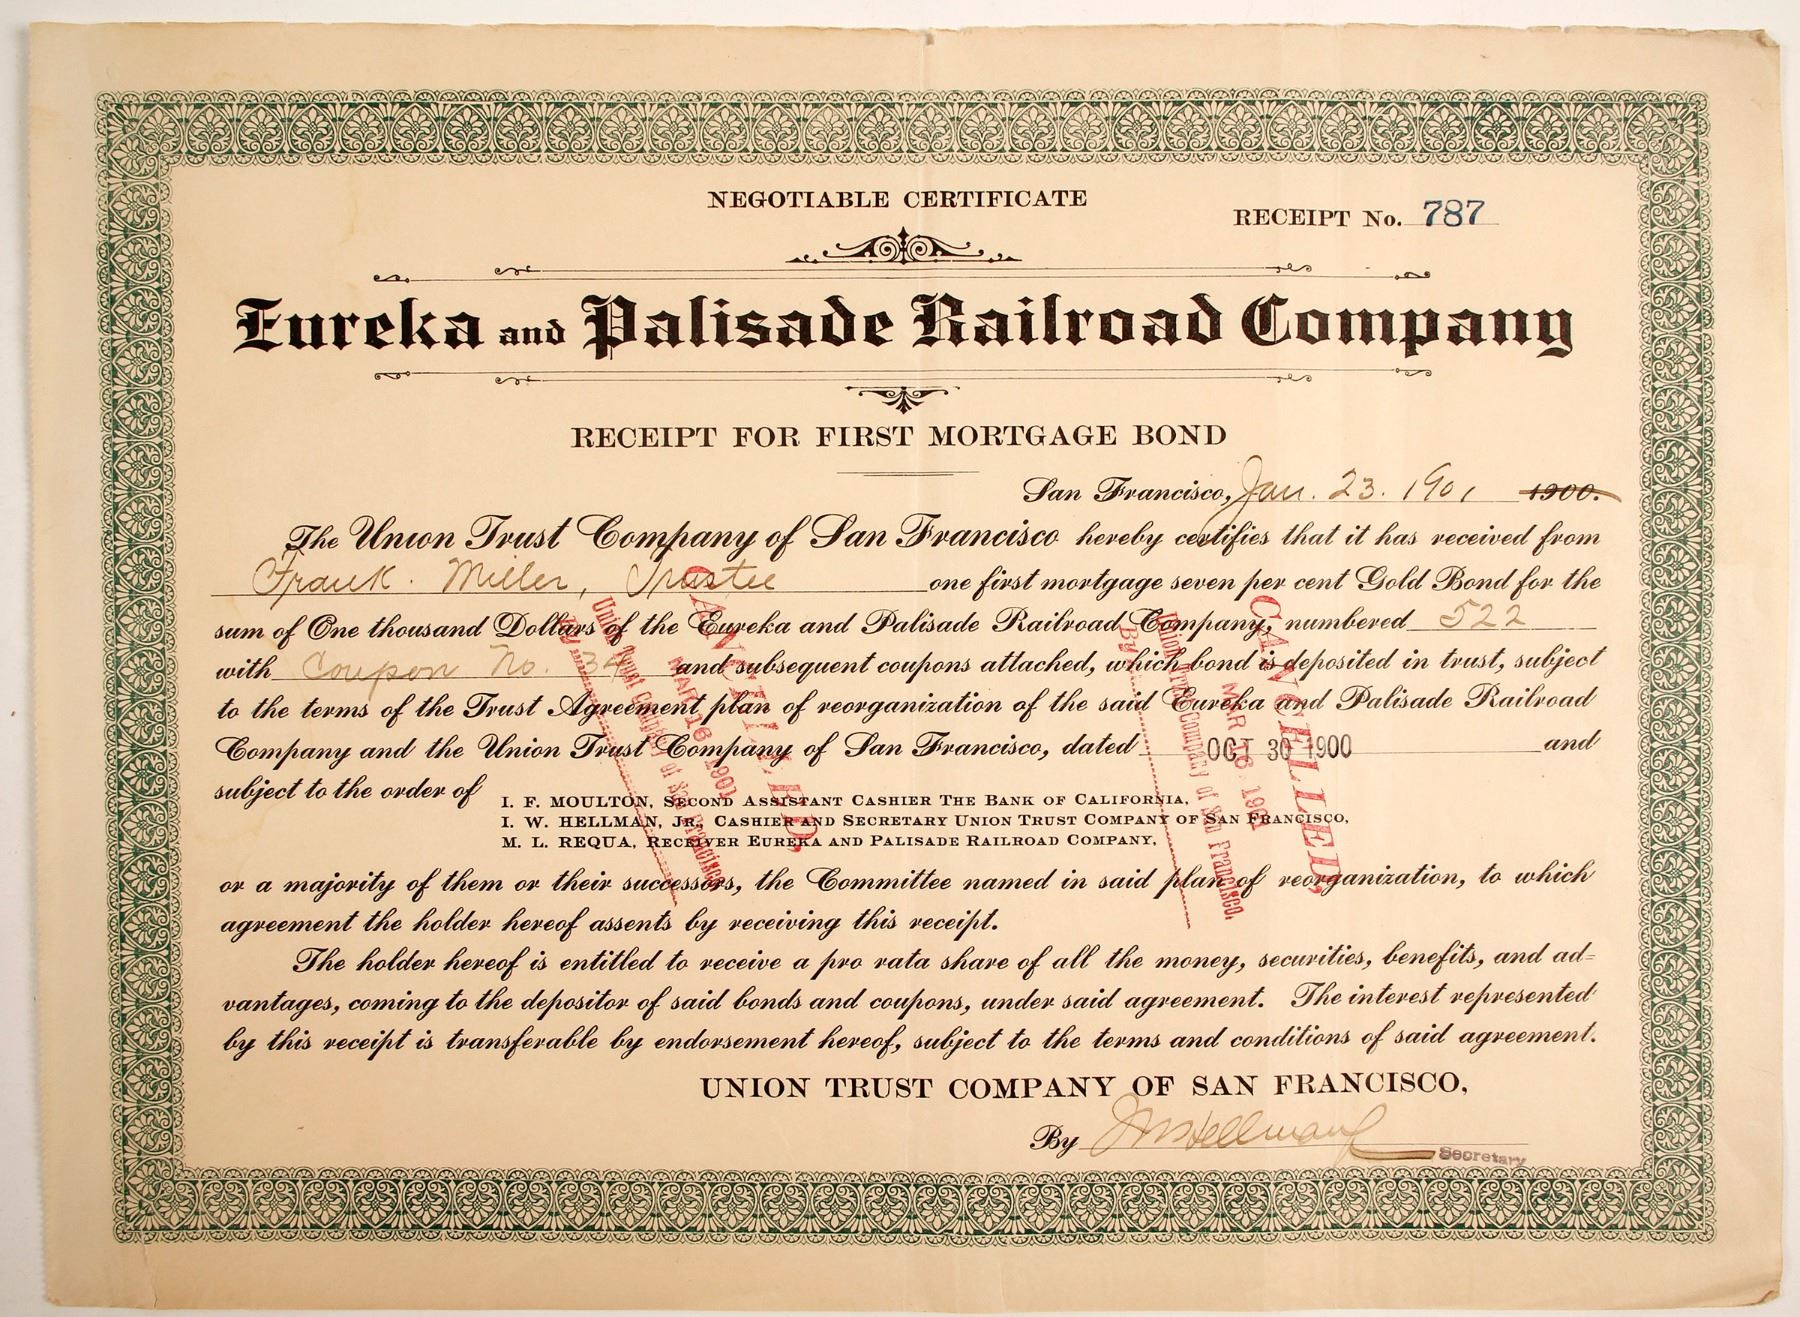 NEGOTIABLE CERTIFICATE
RECEIPT No. 787
Eureka and Palisade Railroad Company
RECEIPT FOR FIRST MORTGAGE BOND
San Francisco, Jan. 23. 1901 1900.
The Union Trust Company of San Francisco hereby certifies that it has received from
Frank. Miller, Trustee one first mortgage seven per cent Gold Bond for the
sum of One thousand Dollars of the Eureka and Palisade Railroad Company, numbered 522
with Coupon No. 34 and subsequent coupons attached, which bond is deposited in trust, subject
to the terms of the Trust Agreement plan of reorganization of the said Eureka and Palisade Railroad
Company and the Union Trust Company of San Francisco, dated OCT 30 1900 and
subject to the order of
I. F. MOULTON, SECOND ASSISTANT CASHIER THE BANK OF CALIFORNIA,
I. W. HELLMAN, JR., CASHIER AND SECRETARY UNION TRUST COMPANY OF SAN FRANCISCO,
M. L. REQUA, RECEIVER EUREKA AND PALISADE RAILROAD COMPANY,
or a majority of them or their successors, the Committee named in said plan of reorganization, to which
agreement the holder hereof assents by receiving this receipt.
The holder hereof is entitled to receive a pro rata share of all the money, securities, benefits, and ad=
vantages, coming to the depositor of said bonds and coupons, under said agreement. The interest represented
by this receipt is transferable by endorsement hereof, subject to the terms and conditions of said agreement.
UNION TRUST COMPANY OF SAN FRANCISCO,
By IW Hellman Jr
Secretary
CANCELLED,
MAR 16 1901
Union Trust Company of San Francisco.
By
CANCELLED,
MAR 16 1901
Union Trust Company of San Francisco.
By